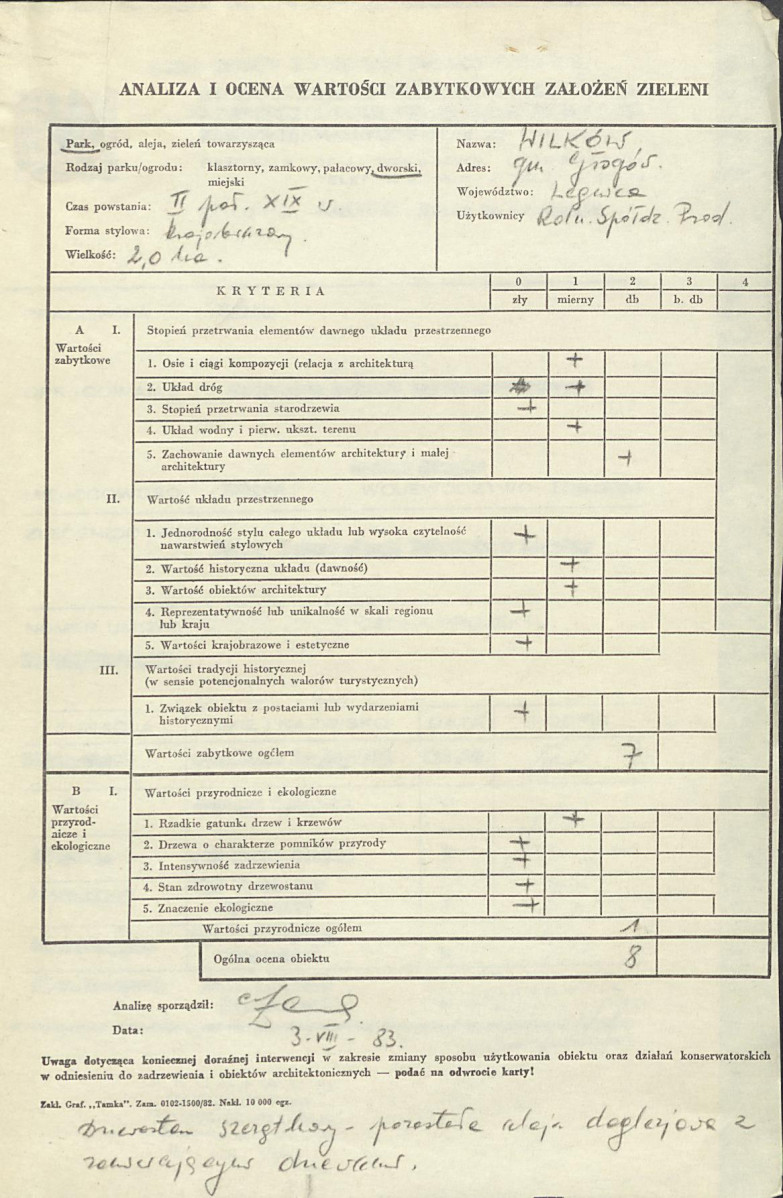 ANALIZA I OCENA WARTOŚCI ZABYTKOWYCH ZAŁOŻEŃ ZIELENI
Park, ogród, aleja, zieleń towarzysząca
Rodzaj parku/ogrodu: klasztorny, zamkowy, pałacowy, dworski,
miejski
Czas powstania: II poł. XIX w.
Forma stylowa: krajobrazowy.
Wielkość: 2,0 ha.
Nazwa: WILKÓW
Adres: gm. Głogów.
Województwo: Legnica
Użytkownicy Roln. Spółdz. Prod.
KRYTERIA
0 1 2 3 4
zły mierny db b. db
A I. Stopień przetrwania elementów dawnego układu przestrzennego
Wartości
zabytkowe
1. Osie i ciągi kompozycji (relacja z architekturą +
2. Układ dróg +
3. Stopień przetrwania starodrzewia +
4. Układ wodny i pierw. ukszt. terenu +
5. Zachowanie dawnych elementów architektury i małej +
architektury
II. Wartość układu przestrzennego
1. Jednorodność stylu całego układu lub wysoka czytelność +
nawarstwień stylowych
2. Wartość historyczna układu (dawność) +
3. Wartość obiektów architektury +
4. Reprezentatywność lub unikalność w skali regionu +
lub kraju
5. Wartości krajobrazowe i estetyczne +
III. Wartości tradycji historycznej
(w sensie potencjonalnych walorów turystycznych)
1. Związek obiektu z postaciami lub wydarzeniami +
historycznymi
Wartości zabytkowe ogółem 7
B I. Wartości przyrodnicze i ekologiczne
Wartości
przyrod-
nicze i
ekologiczne
1. Rzadkie gatunki drzew i krzewów +
2. Drzewa o charakterze pomników przyrody +
3. Intensywność zadrzewienia +
4. Stan zdrowotny drzewostanu +
5. Znaczenie ekologiczne +
Wartości przyrodnicze ogółem 1
Ogólna ocena obiektu 8
Analizę sporządził:
Data: 3-VIII-83.
Uwaga dotycząca koniecznej doraźnej interwencji w zakresie zmiany sposobu użytkowania obiektu oraz działań konserwatorskich
w odniesieniu do zadrzewienia i obiektów architektonicznych — podać na odwrocie karty!
Zakł. Graf. „Tamka". Zam. 0102-1500/82. Nakł. 10 000 egz.
Drzewostan szczątkowy - pozostała aleja daglezjowa z
zamierającymi drzewami.